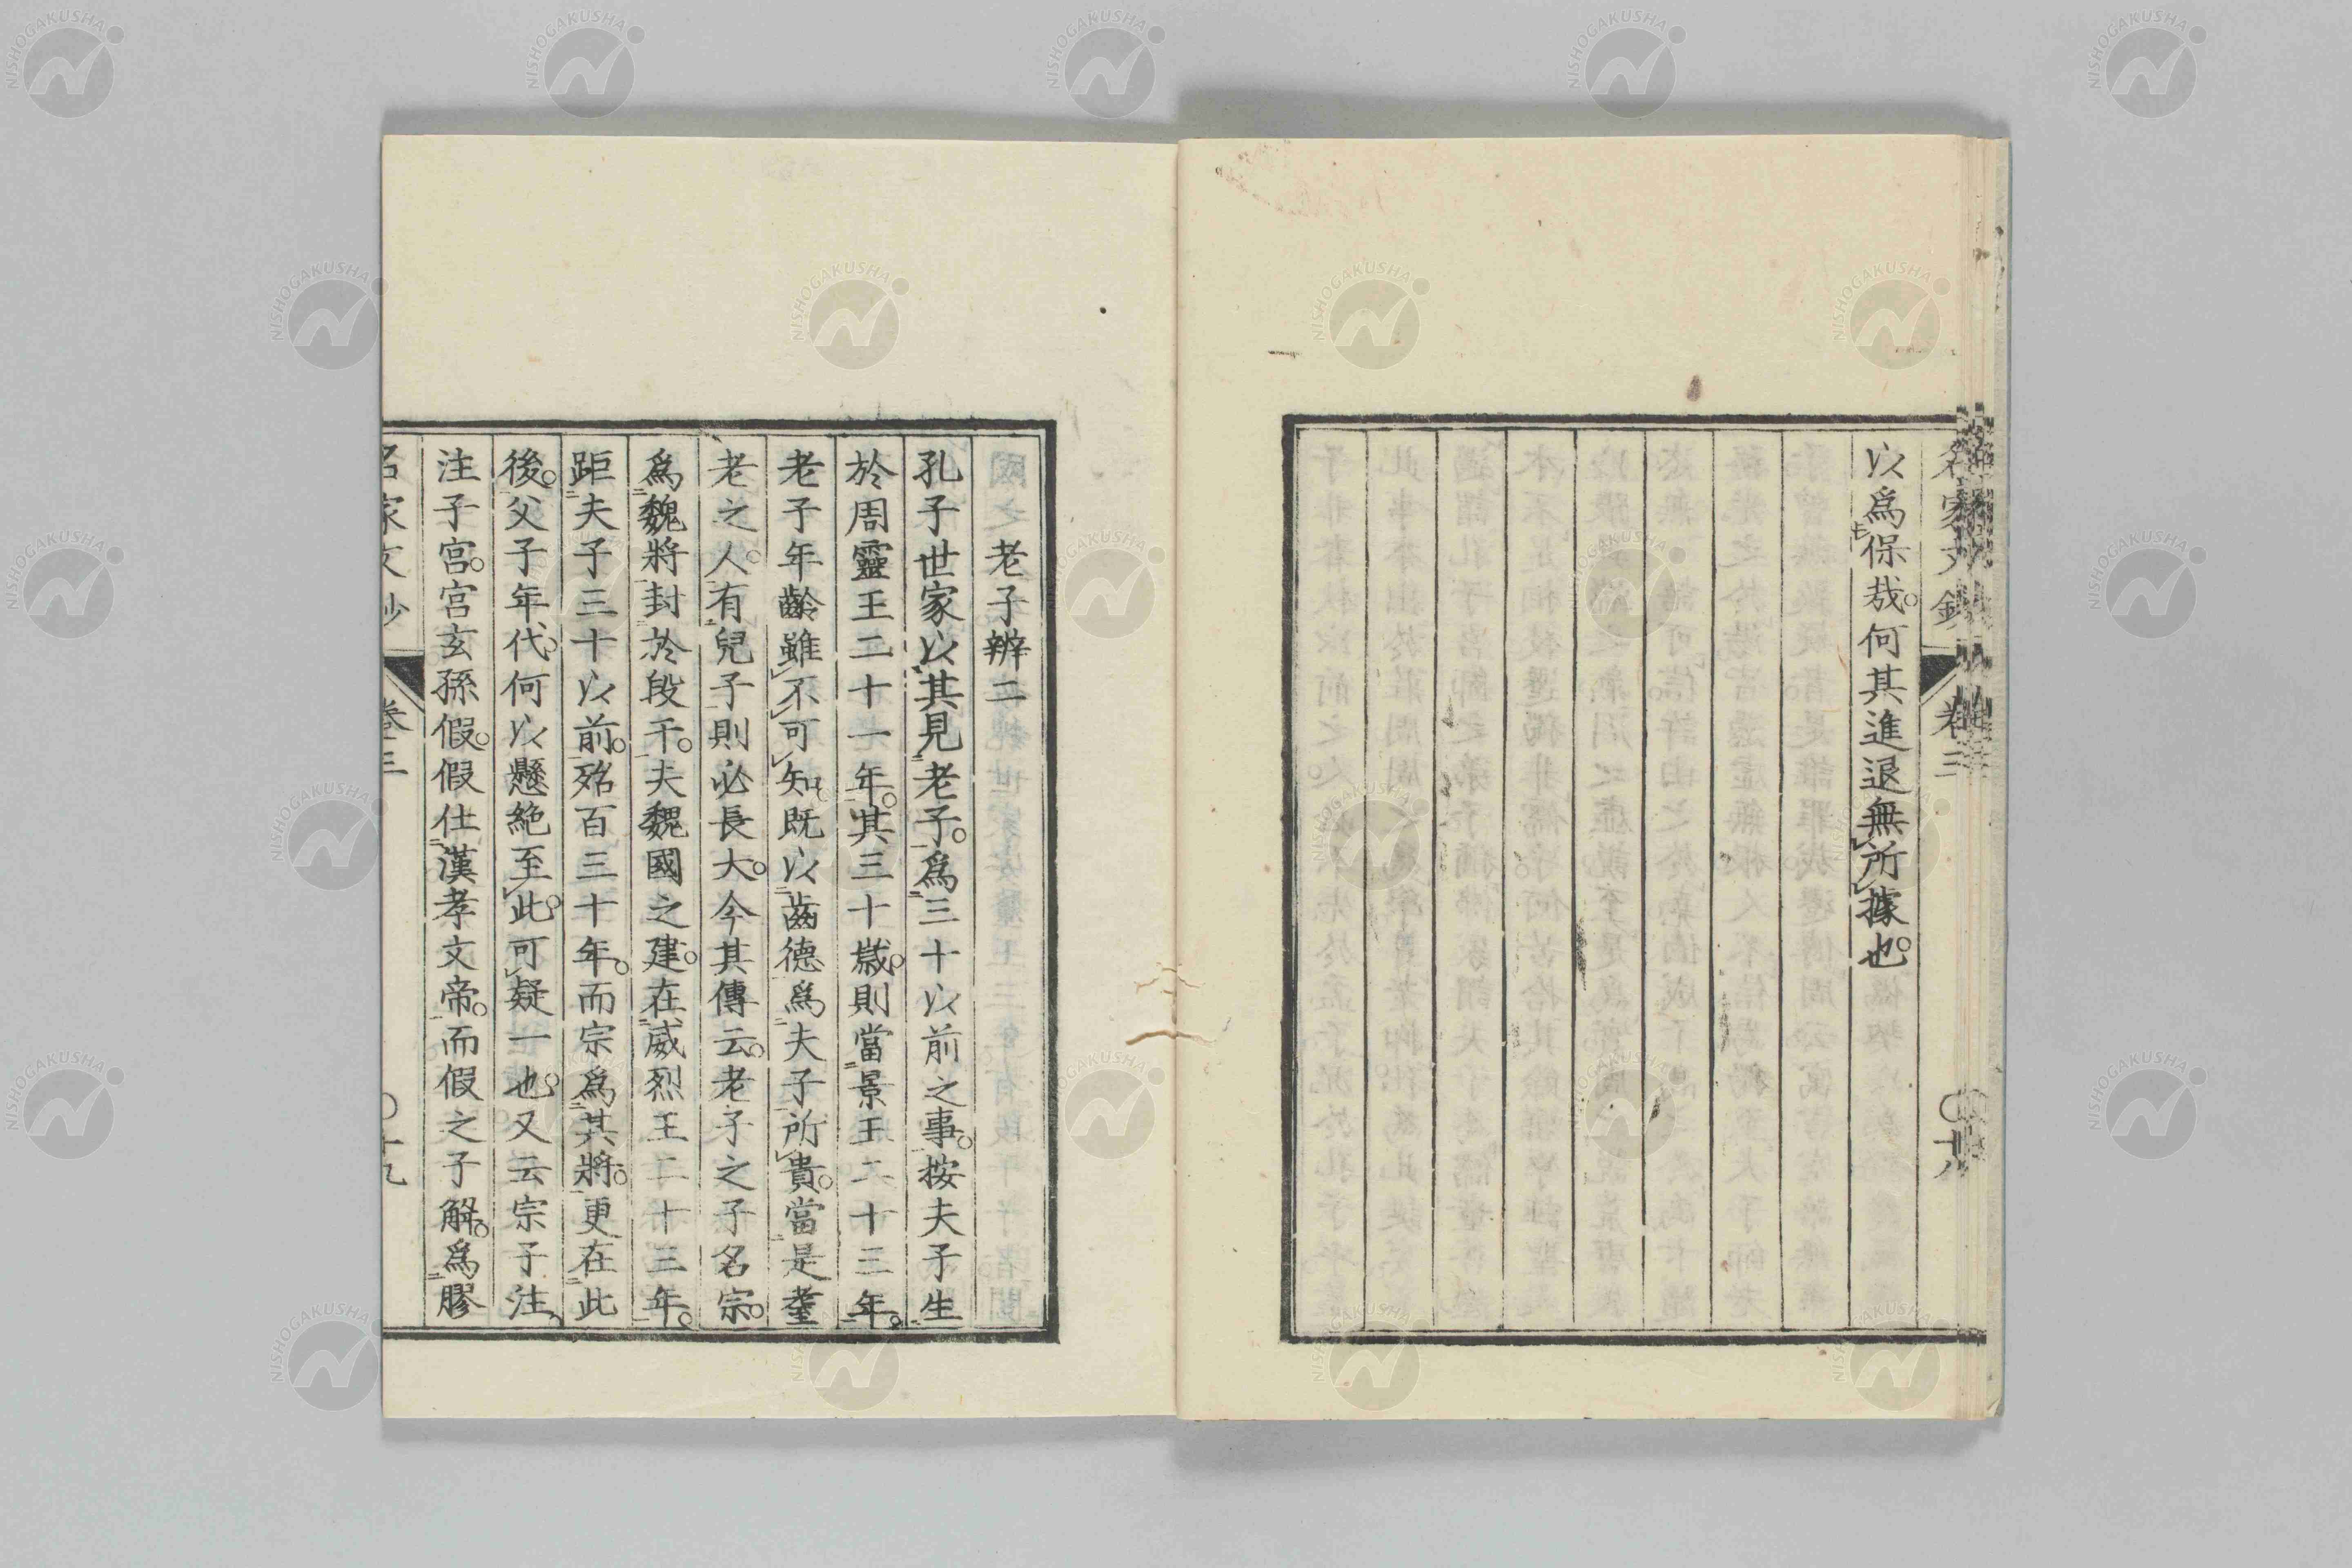 以爲保哉。何其進退無所據也。
老子辨二
孔子世家以其見老子。爲三十以前之事。按夫子生
於周靈王二十一年。其三十歲。則當景王二十三年。
老子年齡雖不可知。既以齒德爲夫子所貴。當是耋
老之人。有兒子則必長大。今其傳云。老子之子名宗。
爲魏將封於段干。夫魏國之建。在威烈王二十三年。
距夫子三十以前。殆百三十年。而宗爲其將。更在此
後。父子年代。何以懸絕至此。可疑一也。又云宗子注、
注子宮。宮玄孫假。假仕漢孝文帝。而假之子解。爲膠
名家文鈔 卷三 〇十九
NISHOGAKUSHA